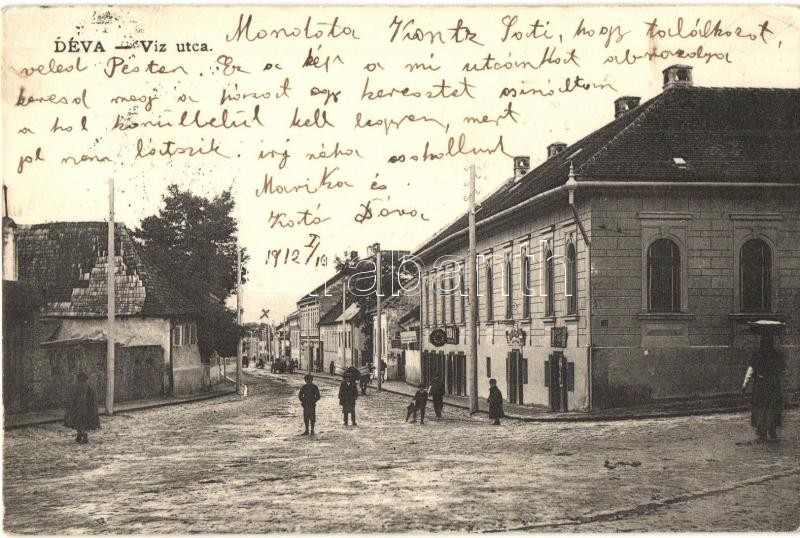 DÉVA — Viz utca.
Mondta Kontz Sati, hogy találkozot,
veled Pesten. Ez a kép a mi utcánkat abrazolja
keresd meg a házat egy keresztet csináltam
a hol körülbelül kell legyen, mert
jol nem látszik. irj néha csokollunk
Mariska és
Kató Déva
1912 I/13
Darabanth